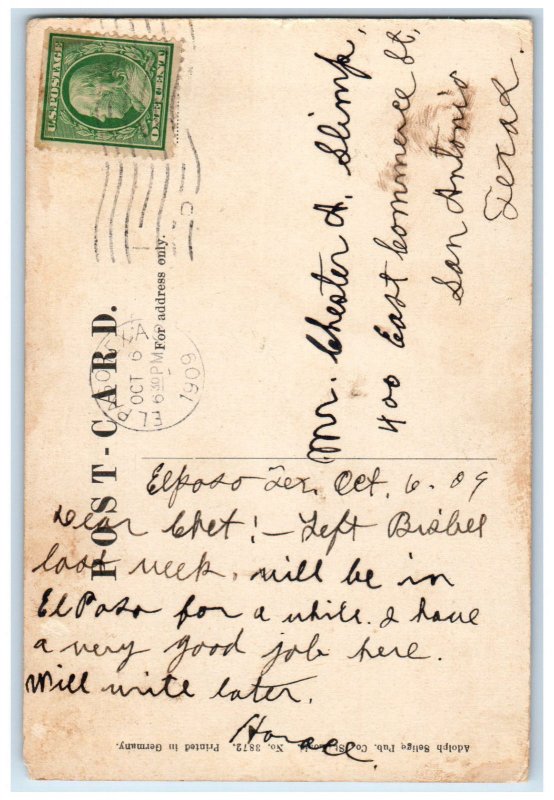 U.S. POSTAGE
ONE CENT
POST-CARD.
For address only.
EL PASO
OCT 6
6 30 PM
1909
Mr. Chester A. Slimp,
400 East Commerce St,
San Antonio
Texas
Elpaso Tex. Oct. 6. 09
Dear Chet! - Left Bisbee
last week. will be in
El Paso for a while. I have
a very good job here.
Will write later.
Horace.
Adolph Selige Pub. Co., St. Louis, No. 3872. Printed in Germany.